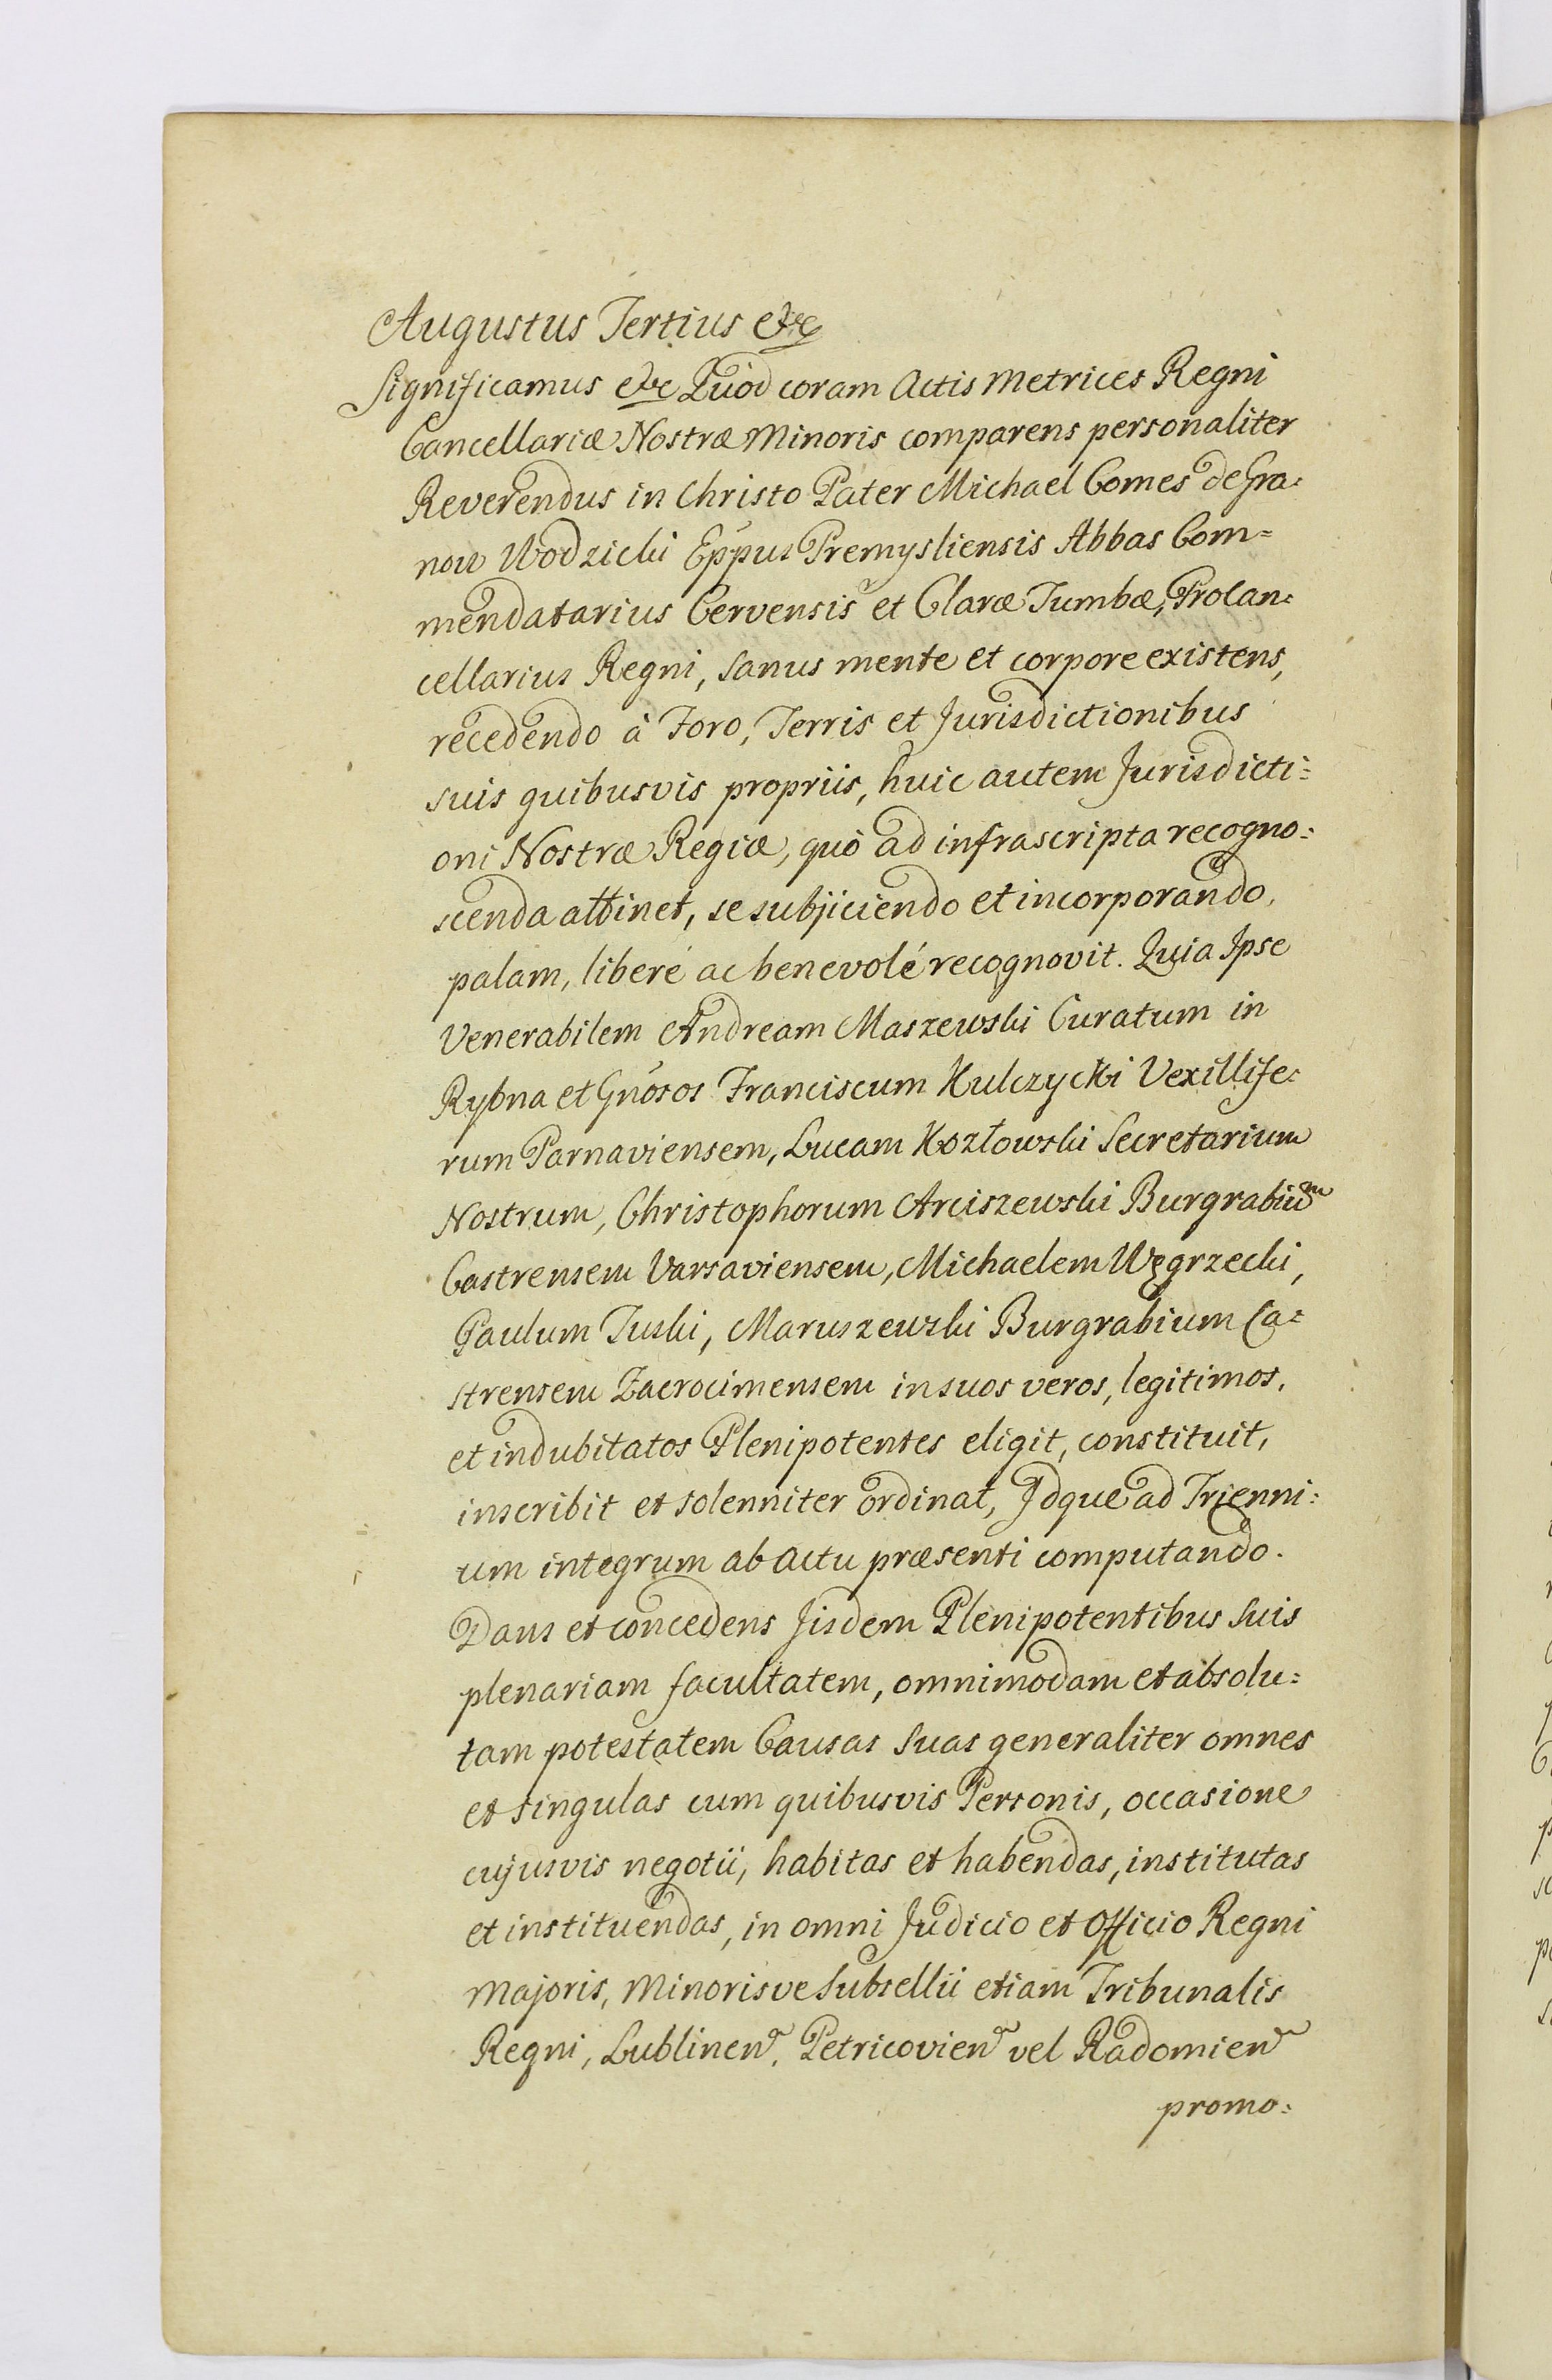 Augustus Tertius etc
Significamus etc Quod coram Actis Metrices Regni
Cancellariæ Nostræ Minoris comparens personaliter
Reverendus in Christo Pater Michael Comes de Gra=
now Wodzicki Eppus Premysliensis Abbas Com=
mendatarius Cervensis et Claræ Tumbæ, Procan=
cellarius Regni, sanus mente et corpore existens,
recedendo à Foro, Terris et Jurisdictionibus
suis quibusvis propriis, huic autem Jurisdicti=
oni Nostræ Regiæ, quò ad infrascripta recogno=
scenda attinet, se subjiciendo et incorporando,
palam, liberé ac benevolé recognovit. Quia Ipse
Venerabilem Andream Maszewski Curatum in
Rybna et Gnosos Franciscum Kulczycki Vexillife=
rum Parnaviensem, Lucam Kozłowski Secretarium
Nostrum, Christophorum Arciszewski Burgrabium
Castrensem Varsaviensem, Michaelem Węgrzecki,
Paulum Tuski, Maruszewski Burgrabium Ca=
strensem Zacrocimensem in suos veros, legitimos,
et indubitatos Plenipotentes eligit, constituit,
inscribit et solenniter ordinat, Idque ad Trienni=
um integrum ab actu præsenti computando.
Dans et concedens Jisdem Plenipotentibus Suis
plenariam facultatem, omnimodam et absolu=
tam potestatem Causas Suas generaliter omnes
et singulas cum quibusvis Personis, occasione
cujusvis negotii, habitas et habendas, institutas
et instituendas, in omni Judicio et Officio Regni
Majoris, Minorisve Subsellii etiam Tribunalis
Regni, Lublinen. Petricovien vel Radomien
promo=